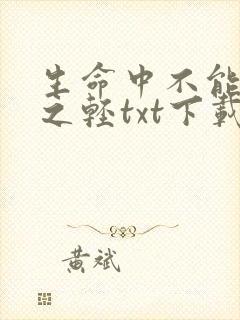 生命中不能
之輕txt下載
黃斌